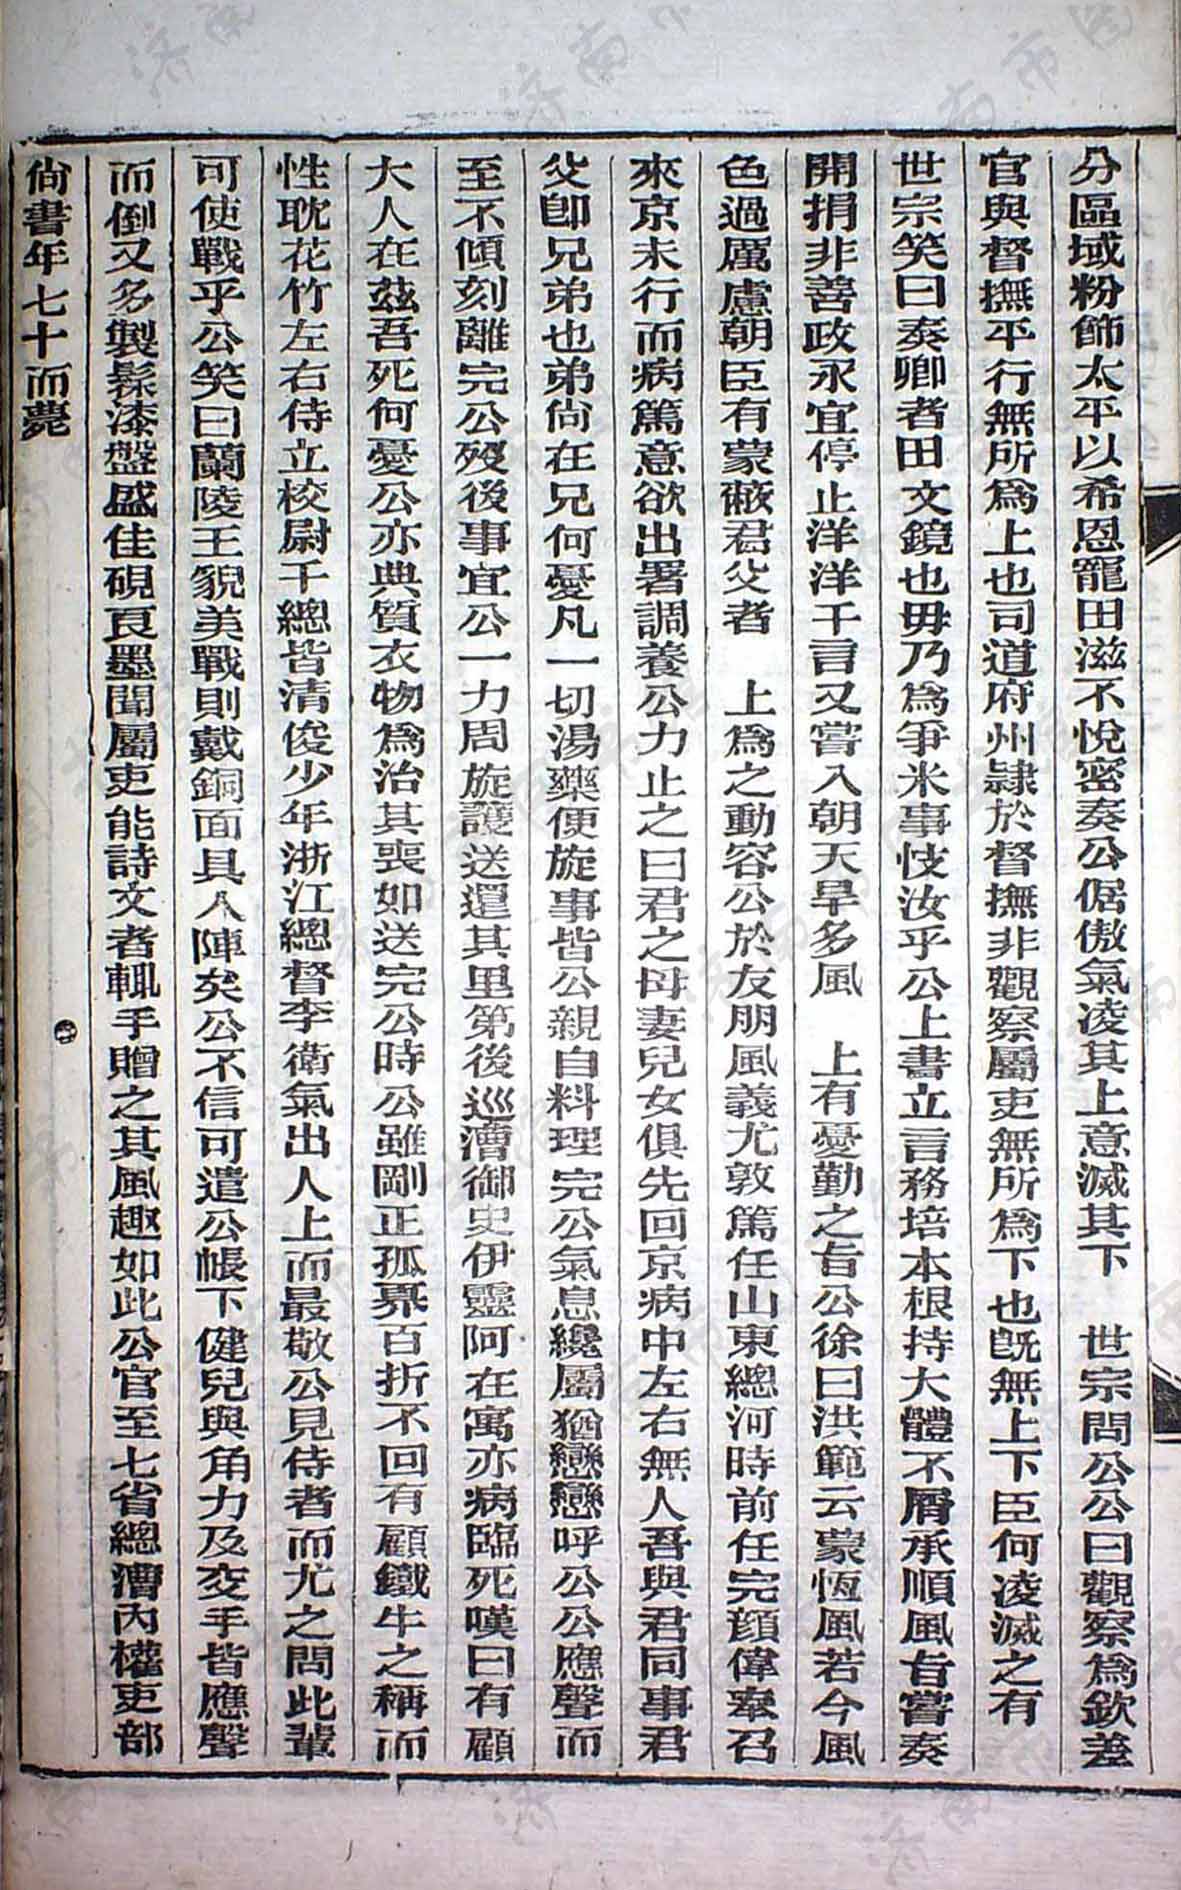 分區域粉飾太平以希恩寵田滋不悅密奏公倨傲氣凌其上意滅其下　世宗問公公曰觀察為欽差
官與督撫平行無所為上也司道府州隸於督撫非觀察屬吏無所為下也既無上下臣何凌滅之有
世宗笑曰奏卿者田文鏡也毋乃為爭米事忮汝乎公上書立言務培本根持大體不屑承順風旨嘗奏
開捐非善政永宜停止洋洋千言又嘗入朝天旱多風　上有憂勤之旨公徐曰洪範云蒙恆風若今風
色過厲慮朝臣有蒙蔽君父者　上為之動容公於友朋風義尤敦篤任山東總河時前任完顏偉奉召
來京未行而病篤意欲出署調養公力止之曰君之母妻兒女俱先回京病中左右無人吾與君同事君
父即兄弟也弟尚在兄何憂凡一切湯藥便旋事皆公親自料理完公氣息纔屬猶戀戀呼公公應聲而
至不傾刻離完公歿後事宜公一力周旋護送還其里第後巡漕御史伊靈阿在寓亦病臨死嘆曰有顧
大人在茲吾死何憂公亦典質衣物為治其喪如送完公時公雖剛正孤㮣百折不回有顧鐵牛之稱而
性耽花竹左右侍立校尉千總皆清俊少年浙江總督李衛氣出人上而最敬公見侍者而尤之問此輩
可使戰乎公笑曰蘭陵王貌美戰則戴銅面具入陣矣公不信可遣公帳下健兒與角力及交手皆應聲
而倒又多製髹漆盤盛佳硯良墨聞屬吏能詩文者輒手贈之其風趣如此公官至七省總漕內權吏部
尚書年七十而薨